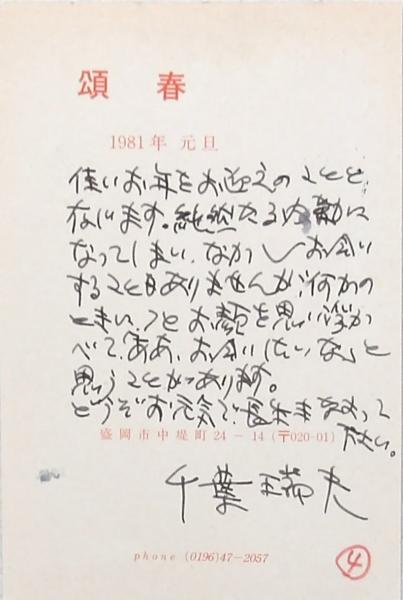 頌春
1981年 元旦
佳いお年をお迎えのことと
存じます。純然たる内勤に
なってしまい、なかなかお会い
することもありませんが、何かの
ときに、ふとお顔を思い浮か
べて、ああ、お会いしたいな、と
思うことがあります。
どうぞお元気で、長生きなさって
下さい。
盛岡市中堤町24－14（〒020-01）
千葉瑞夫
phone (0196)47-2057
④